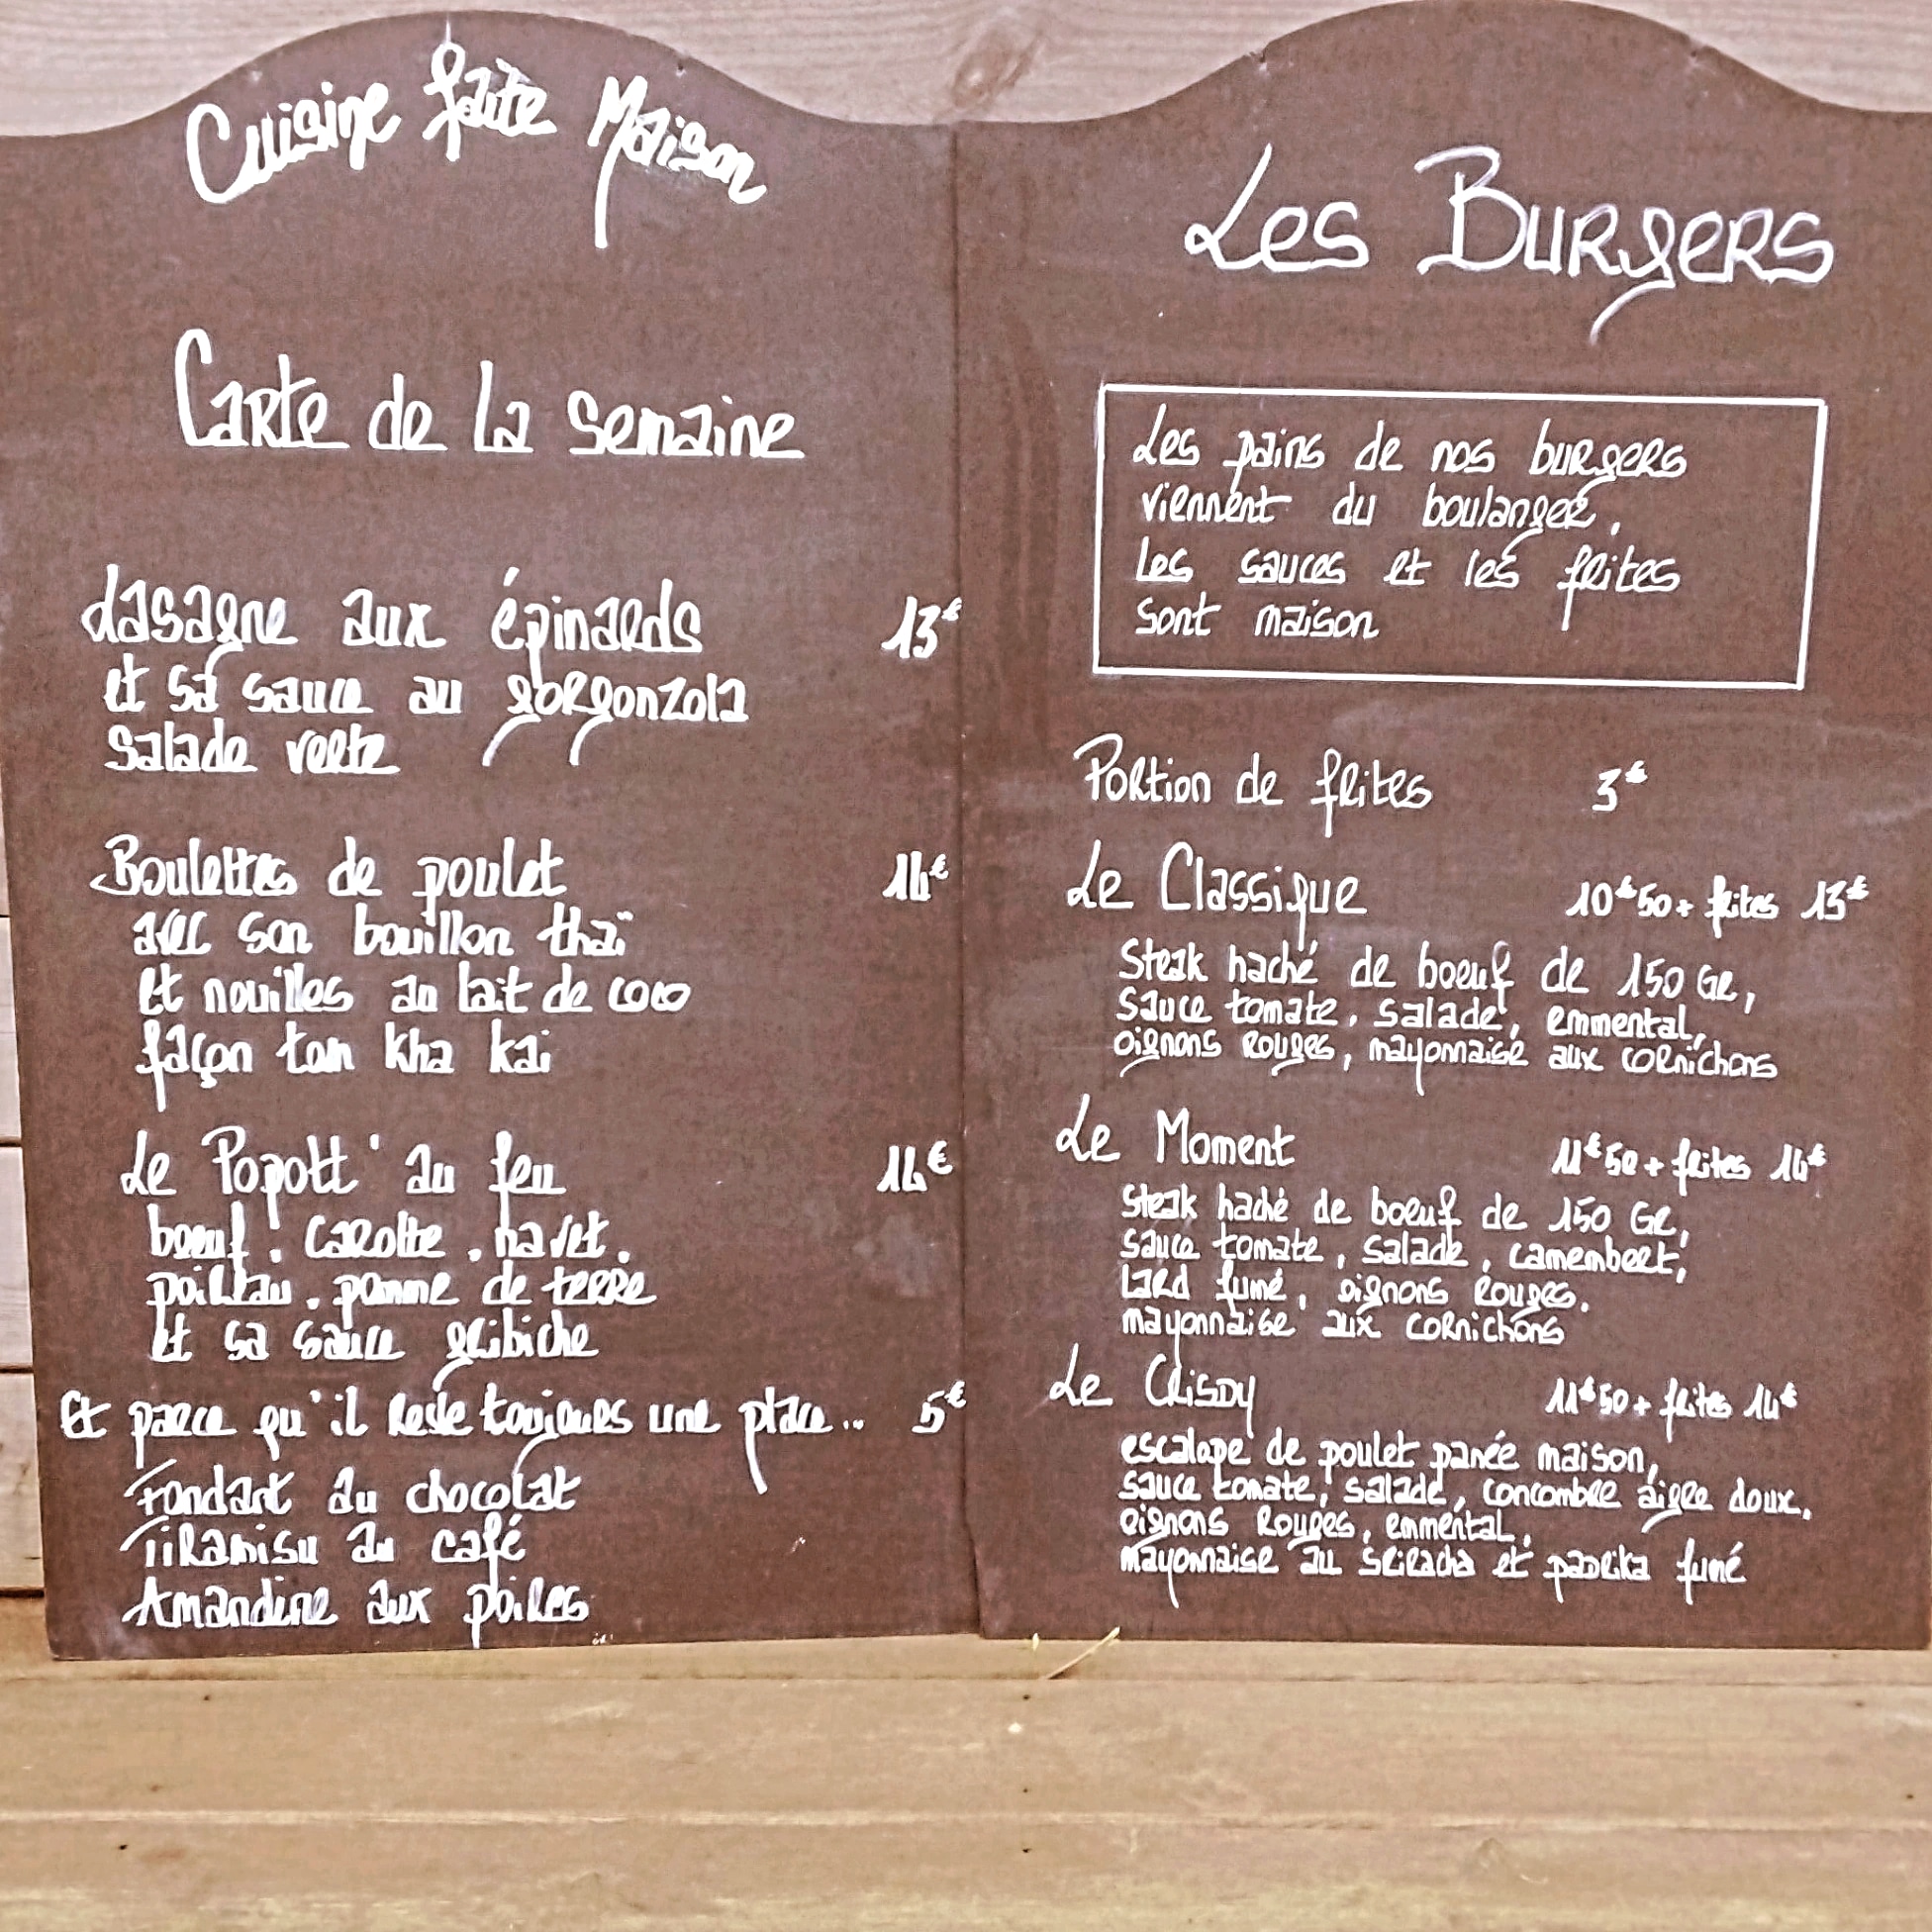 Cuisine faite Maison
Carte de la semaine
Lasagne aux épinards 13€
et sa sauce au gorgonzola
Salade verte
Boulettes de poulet 14€
avec son bouillon thaï
et nouilles au lait de coco
façon tom kha kai
Le Popott' au feu 14€
boeuf, carotte, navet,
poireau, pomme de terre
et sa sauce gribiche
Et parce qu'il reste toujours une place... 5€
Fondant au chocolat
Tiramisu au café
Amandine aux poires
Les Burgers
Les pains de nos burgers
viennent du boulanger,
les sauces et les frites
sont maison
Portion de frites 3€
Le Classique 10€50 + frites 13€
Steak haché de boeuf de 150 Gr,
sauce tomate, salade, emmental,
oignons rouges, mayonnaise aux cornichons
Le Moment 11€50 + frites 14€
Steak haché de boeuf de 150 Gr,
sauce tomate, salade, camembert,
lard fumé, oignons rouges,
mayonnaise aux cornichons
Le Crispy 11€50 + frites 14€
escalope de poulet panée maison,
sauce tomate, salade, concombre aigre doux,
oignons rouges, emmental,
mayonnaise au sriracha et paprika fumé